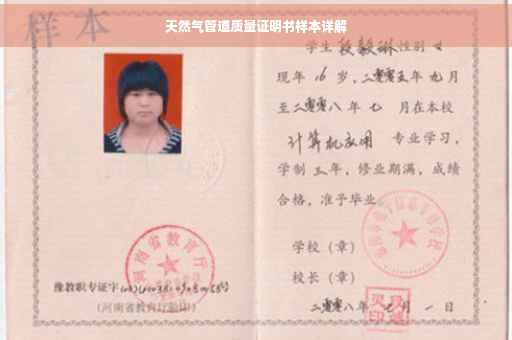 天然气管道质量证明书样本详解
样本
学生 段毅琳 性别 女
现年 16 岁，二零零五年九月
至二零零八年七月在本校
计算机应用 专业学习，
学制 三年，修业期满，成绩
合格，准予毕业。
学校（章）
校长（章）
二零零八年七月一日
河南省教育厅
豫教职专证字
（河南省教育厅验印）